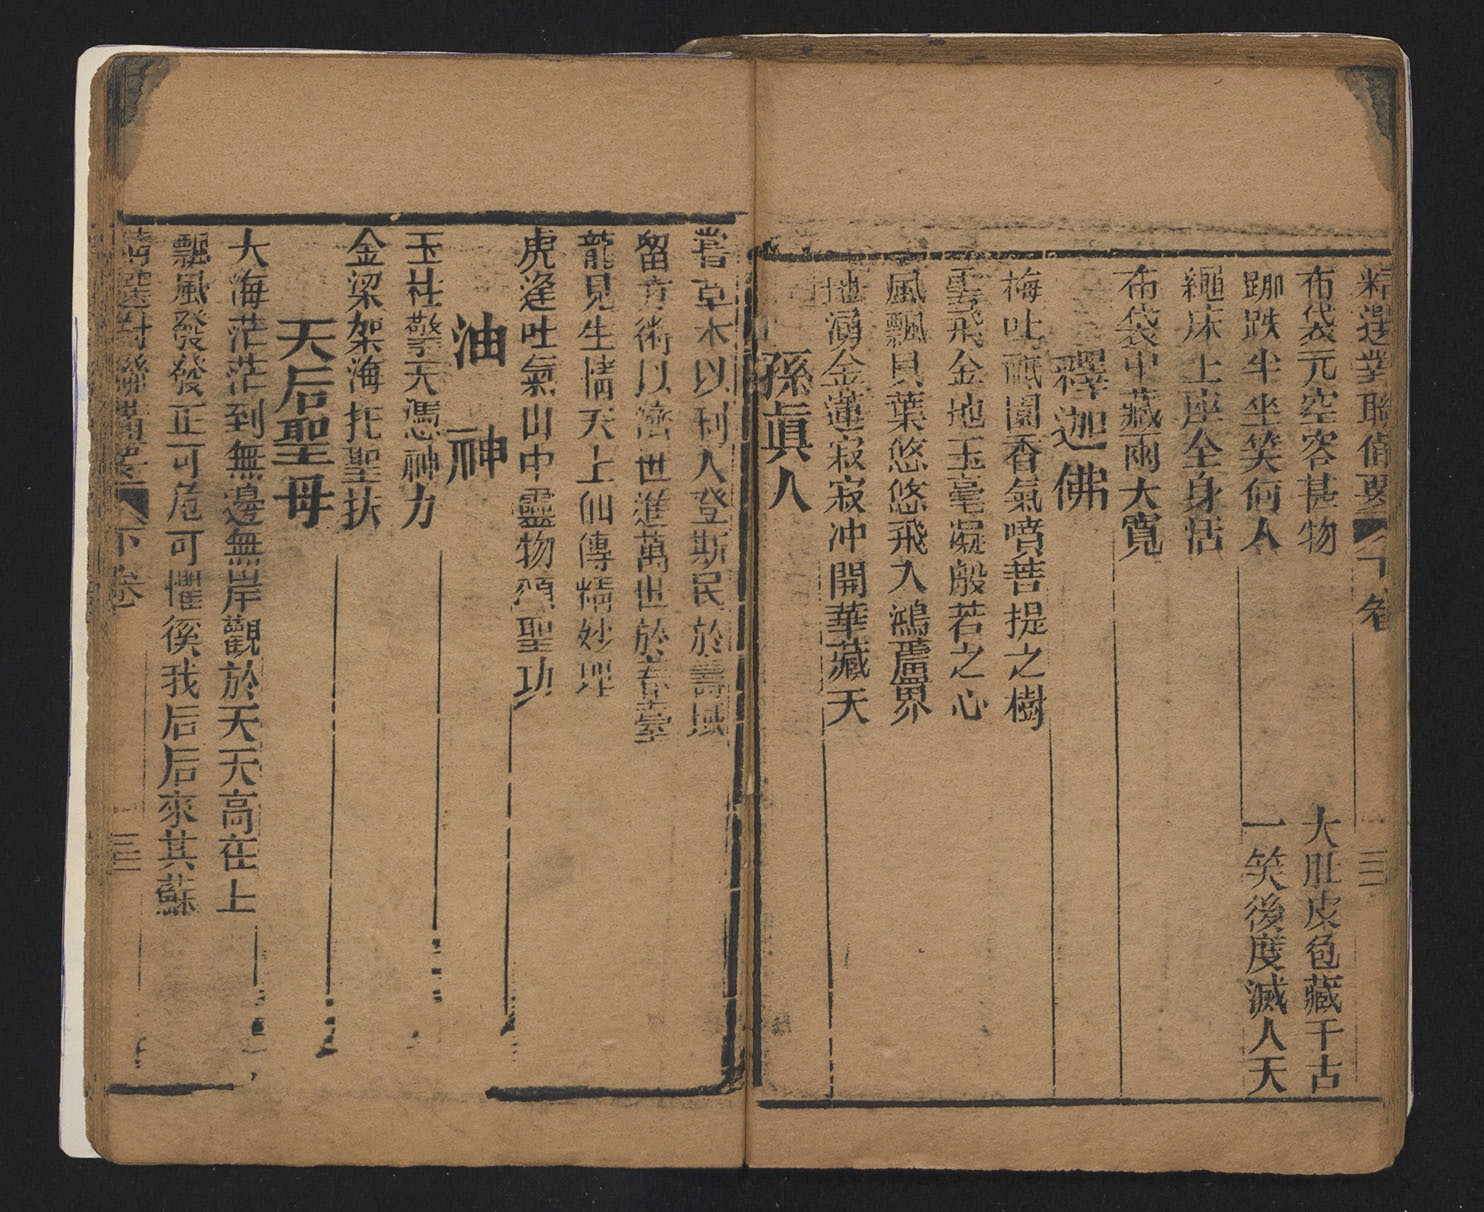 精選對聯備要 下卷 三
布袋元空容甚物 大肚皮包藏千古
跏趺半坐笑何人 一笑後度滅人天
繩床上座全身活
布袋中藏兩大寬
釋迦佛
梅吐祇園香氣噴菩提之樹
雲飛金地玉毫凝般若之心
風飄貝葉悠悠飛入鴻蘆界
地湧金蓮寂寂冲開華藏天
孫眞人
嘗草木以利人登斯民於壽域
留方術以濟世進萬世於春臺
龍見生情天上仙傳精妙理
虎逢吐氣山中靈物頌聖功
油神
玉柱擎天憑神力
金梁架海托聖扶
天后聖母
大海茫茫到無邊無岸觀於天天高在上
飄風發發正可危可懼徯我后后來其蘇
精選對聯備要 下卷 三